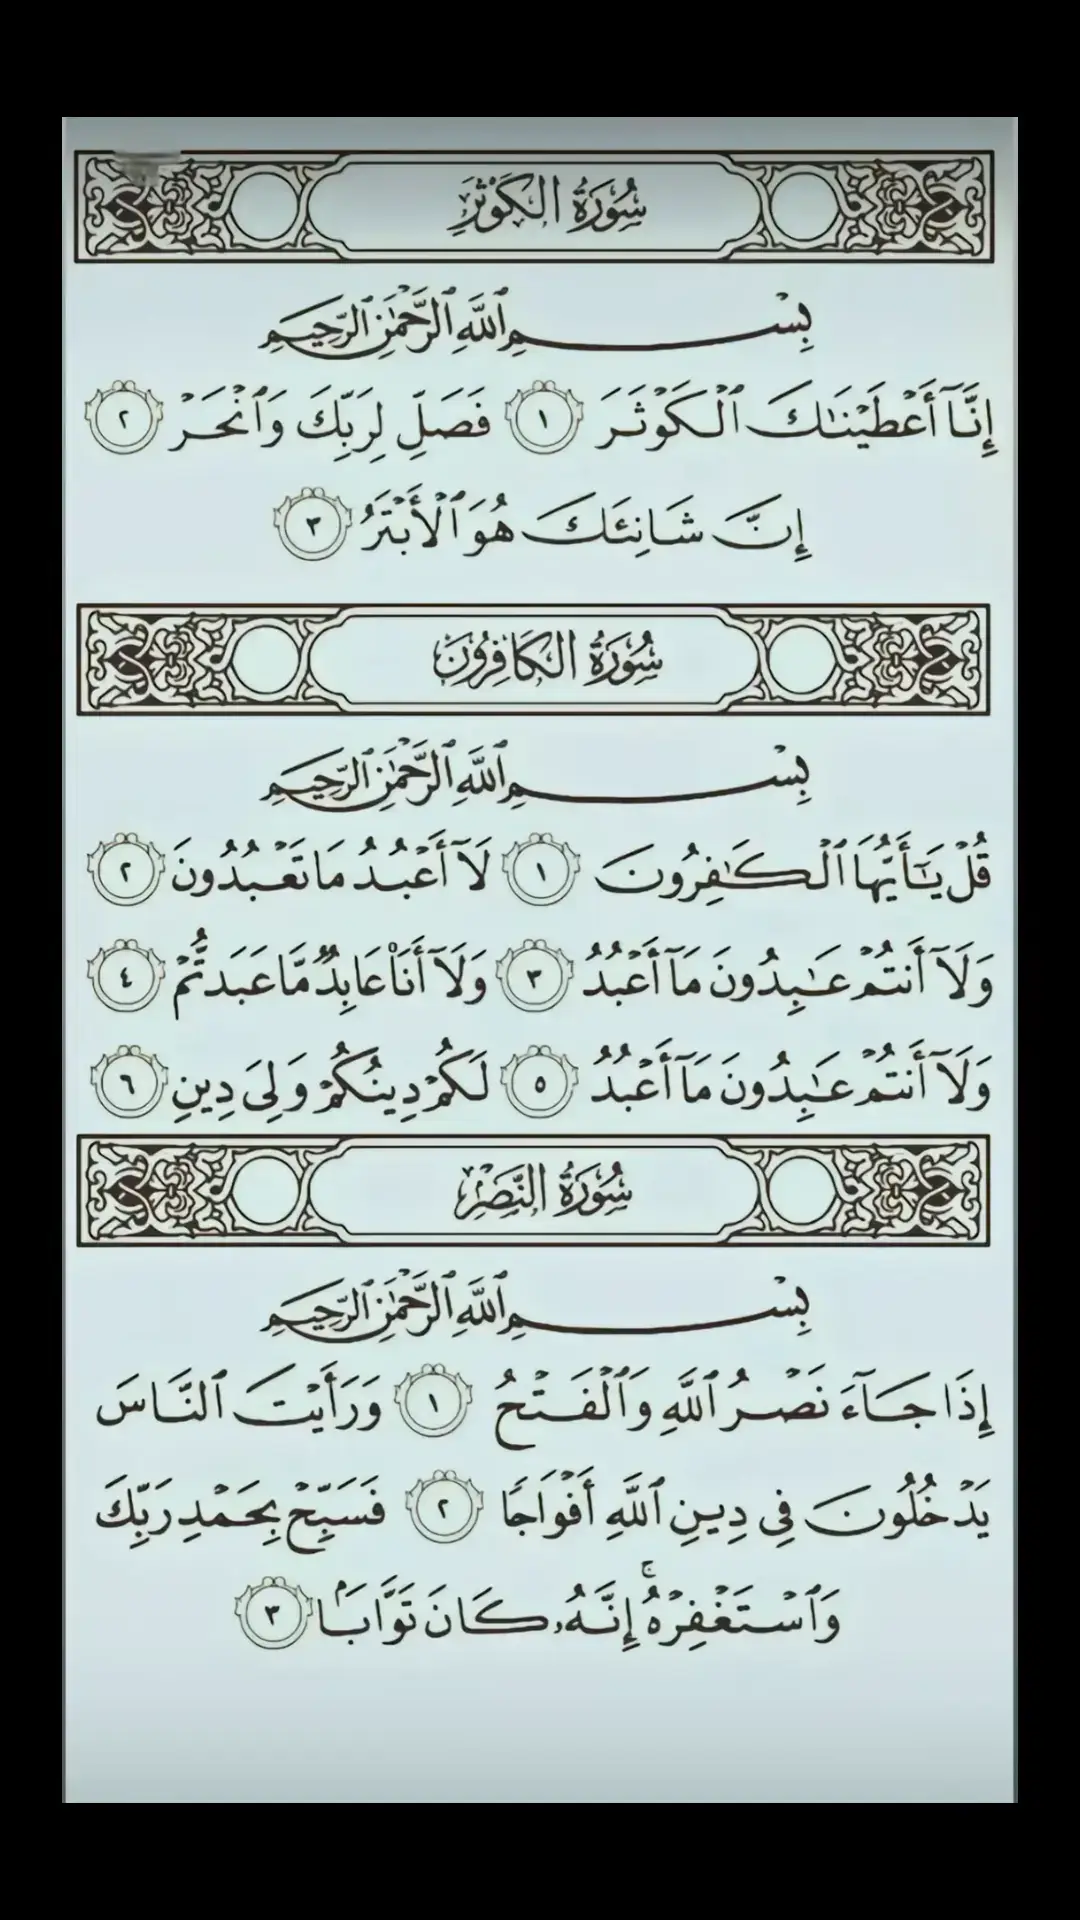 سُورَةُ الكَوْثَرِ
بِسْمِ ٱللَّهِ ٱلرَّحْمَٰنِ ٱلرَّحِيمِ
إِنَّآ أَعْطَيْنَٰكَ ٱلْكَوْثَرَ ١ فَصَلِّ لِرَبِّكَ وَٱنْحَرْ ٢
إِنَّ شَانِئَكَ هُوَ ٱلْأَبْتَرُ ٣
سُورَةُ الكَافِرُونَ
بِسْمِ ٱللَّهِ ٱلرَّحْمَٰنِ ٱلرَّحِيمِ
قُلْ يَٰٓأَيُّهَا ٱلْكَٰفِرُونَ ١ لَآ أَعْبُدُ مَا تَعْبُدُونَ ٢
وَلَآ أَنتُمْ عَٰبِدُونَ مَآ أَعْبُدُ ٣ وَلَآ أَنَا۠ عَابِدٌ مَّا عَبَدتُّمْ ٤
وَلَآ أَنتُمْ عَٰبِدُونَ مَآ أَعْبُدُ ٥ لَكُمْ دِينُكُمْ وَلِىَ دِينِ ٦
سُورَةُ النَّصْرِ
بِسْمِ ٱللَّهِ ٱلرَّحْمَٰنِ ٱلرَّحِيمِ
إِذَا جَآءَ نَصْرُ ٱللَّهِ وَٱلْفَتْحُ ١ وَرَأَيْتَ ٱلنَّاسَ
يَدْخُلُونَ فِى دِينِ ٱللَّهِ أَفْوَاجًا ٢ فَسَبِّحْ بِحَمْدِ رَبِّكَ
وَٱسْتَغْفِرْهُ ۚ إِنَّهُۥ كَانَ تَوَّابَۢا ٣